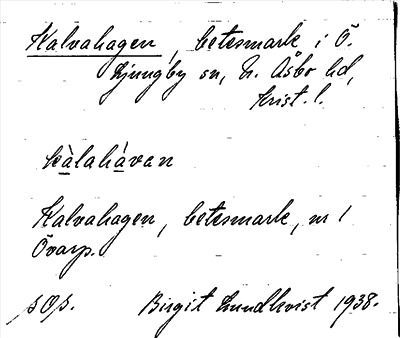 Kalvahagen, betesmark i Ö.
Ljungby sn, N. Åsbo hd,
Krist. l.
kàlahávan
Kalvahagen, betesmark, nr 1
Övarp.
sOs. Birgit Lundkvist 1938.